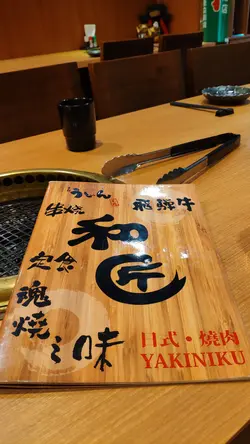 うしん
串焼
飛騨牛
和匠
定食
魂燒之味
日式・燒肉
YAKINIKU